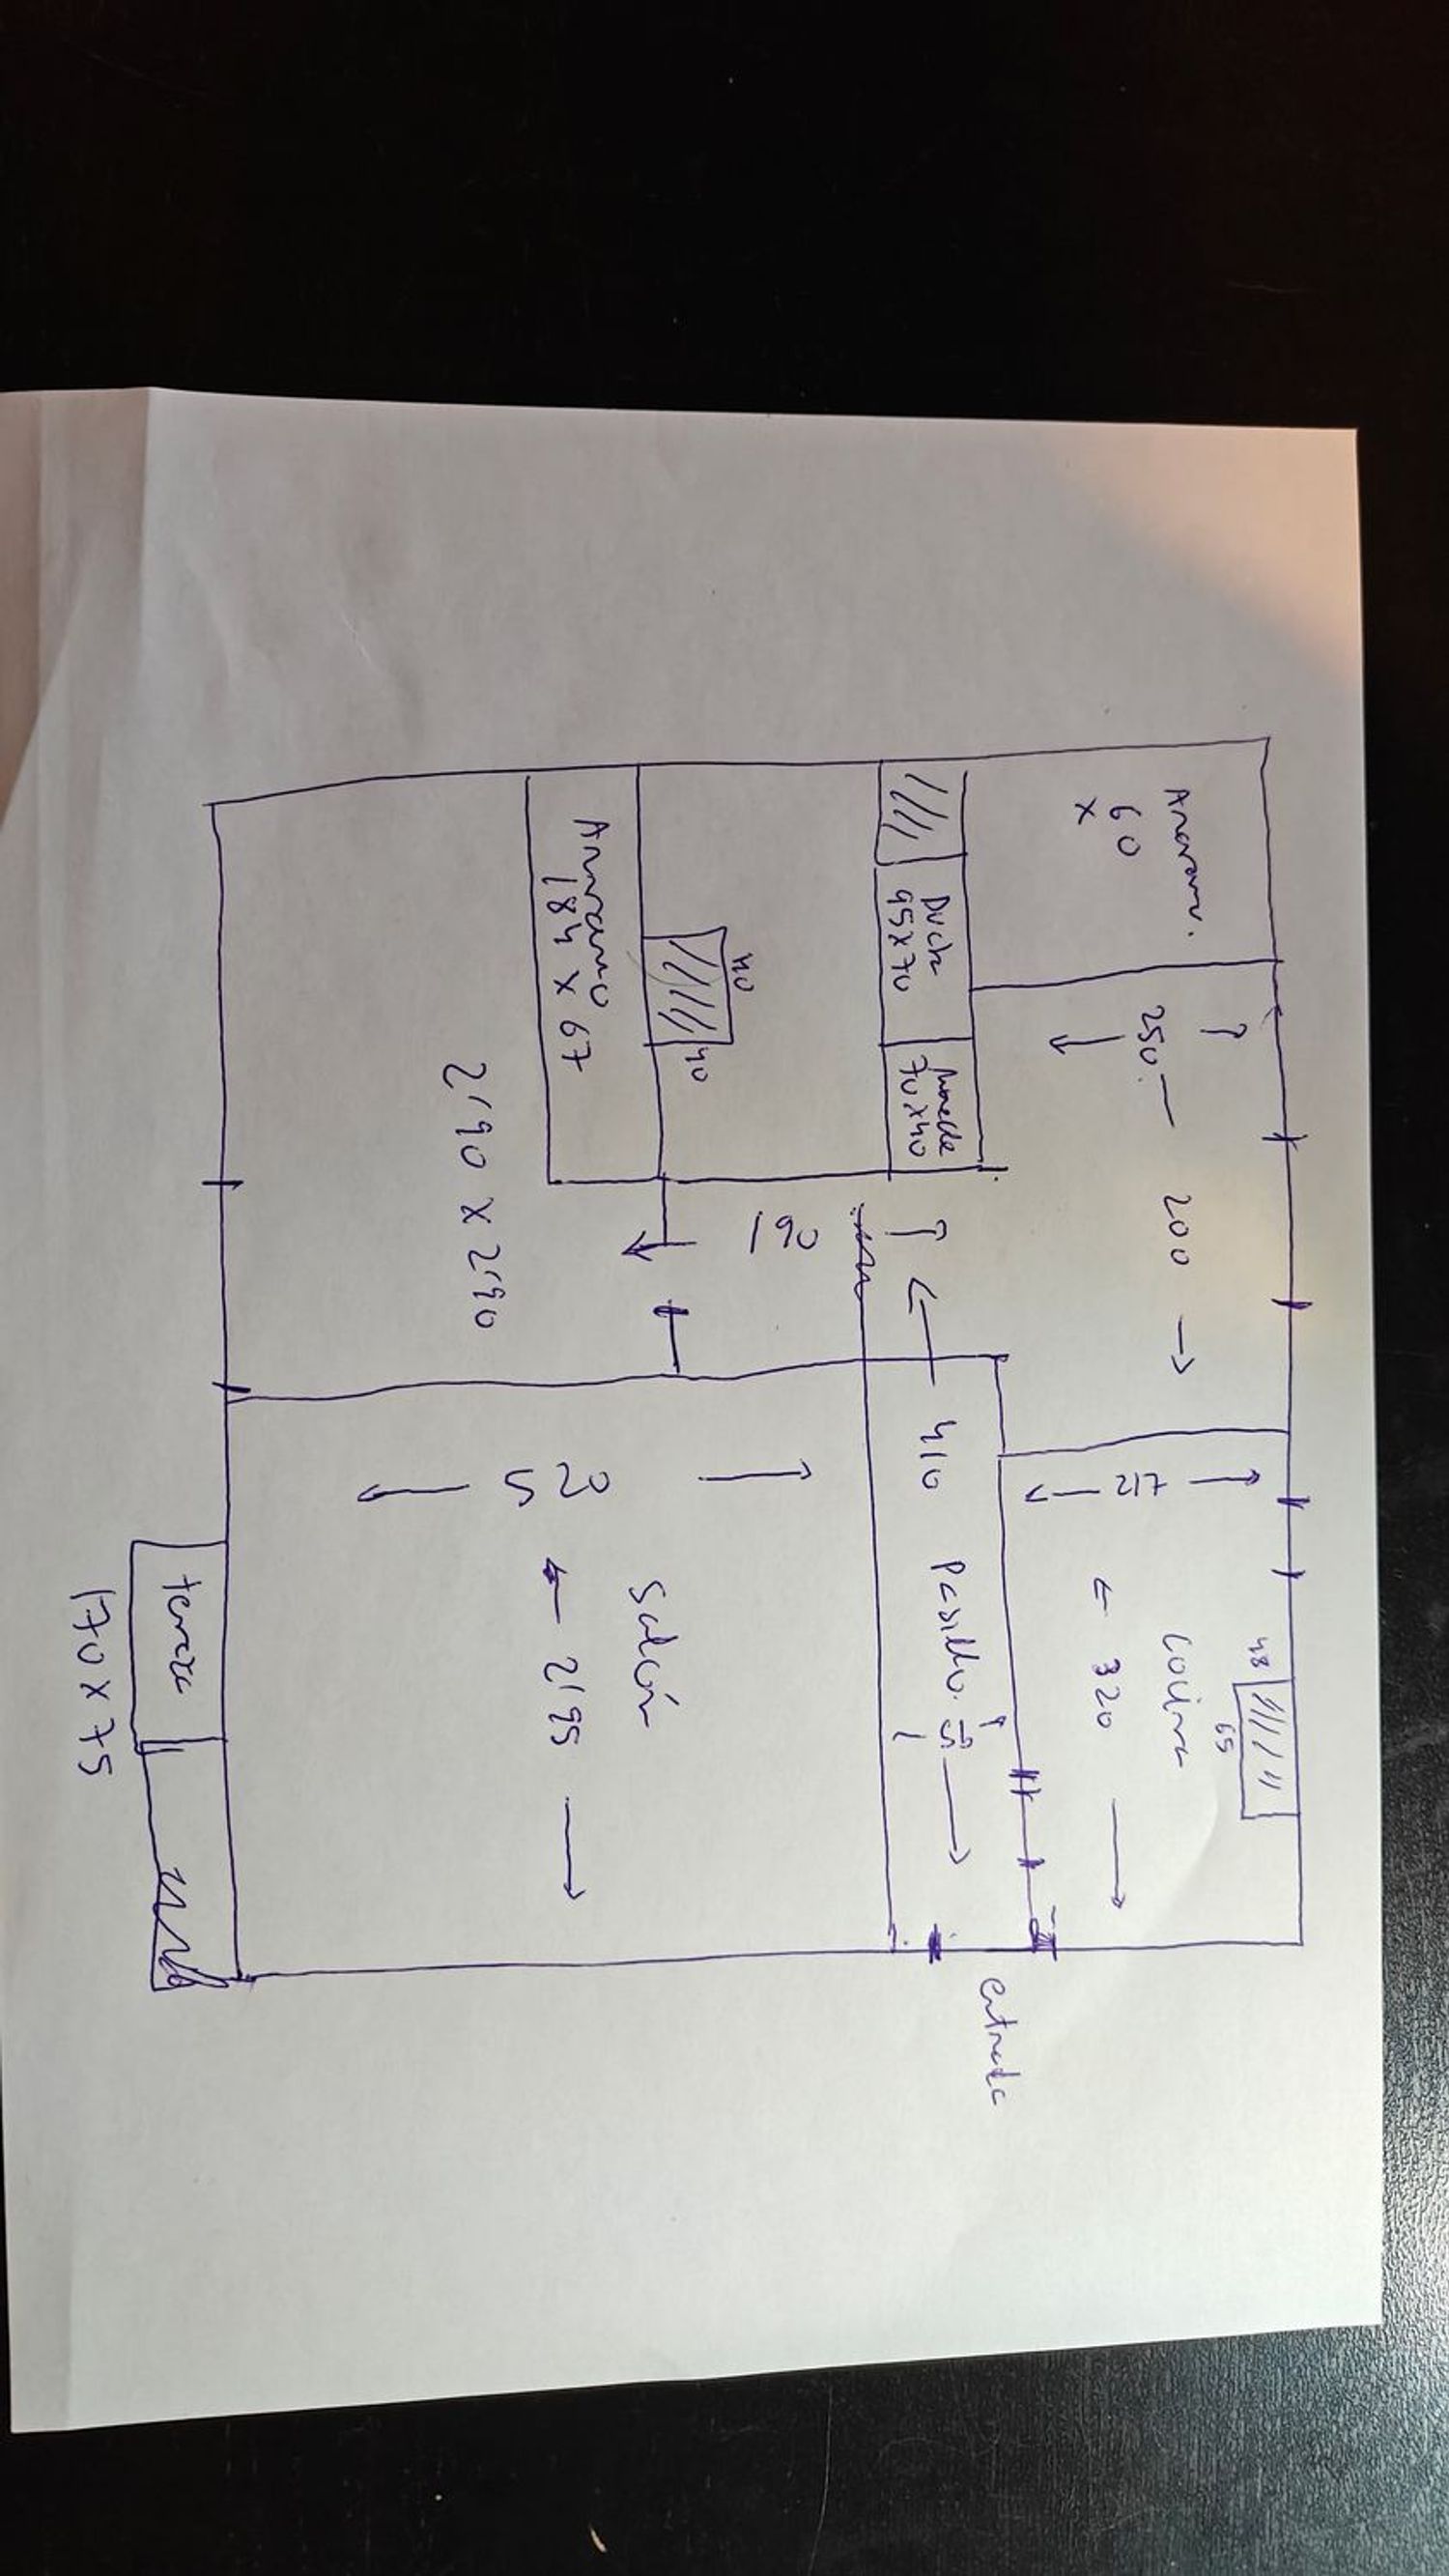 60
x
250
200
48
65
Cocina
217
← 320 →
Ducha
95x70
Mueble
70x40
410
Pasillo.
entrada
40
40
190
Armario
184 x 67
2,90 x 2,90
Salón
← 2,95 →
terraza
170 x 75